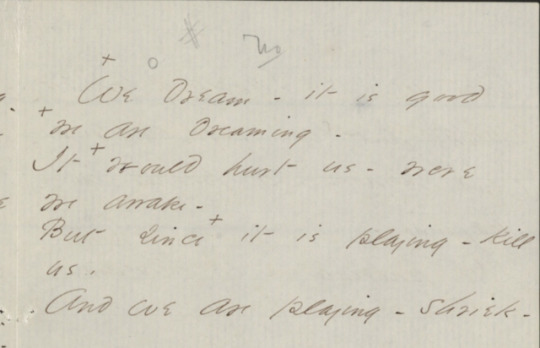 We dream - it is good
we are dreaming -
It would hurt us - were
we awake -
But since it is playing - kill
us.
And we are playing - shriek -